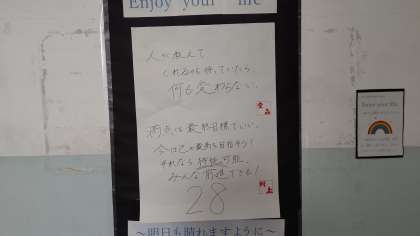 Enjoy your life
人が教えて
くれるのを待っていたら、
何も変わらない。
満点は最終目標でいい。
今は己の最高を目指そう！
それなら持続可能。
みんな前進できる！
28
～明日も晴れますように～
Enjoy your life